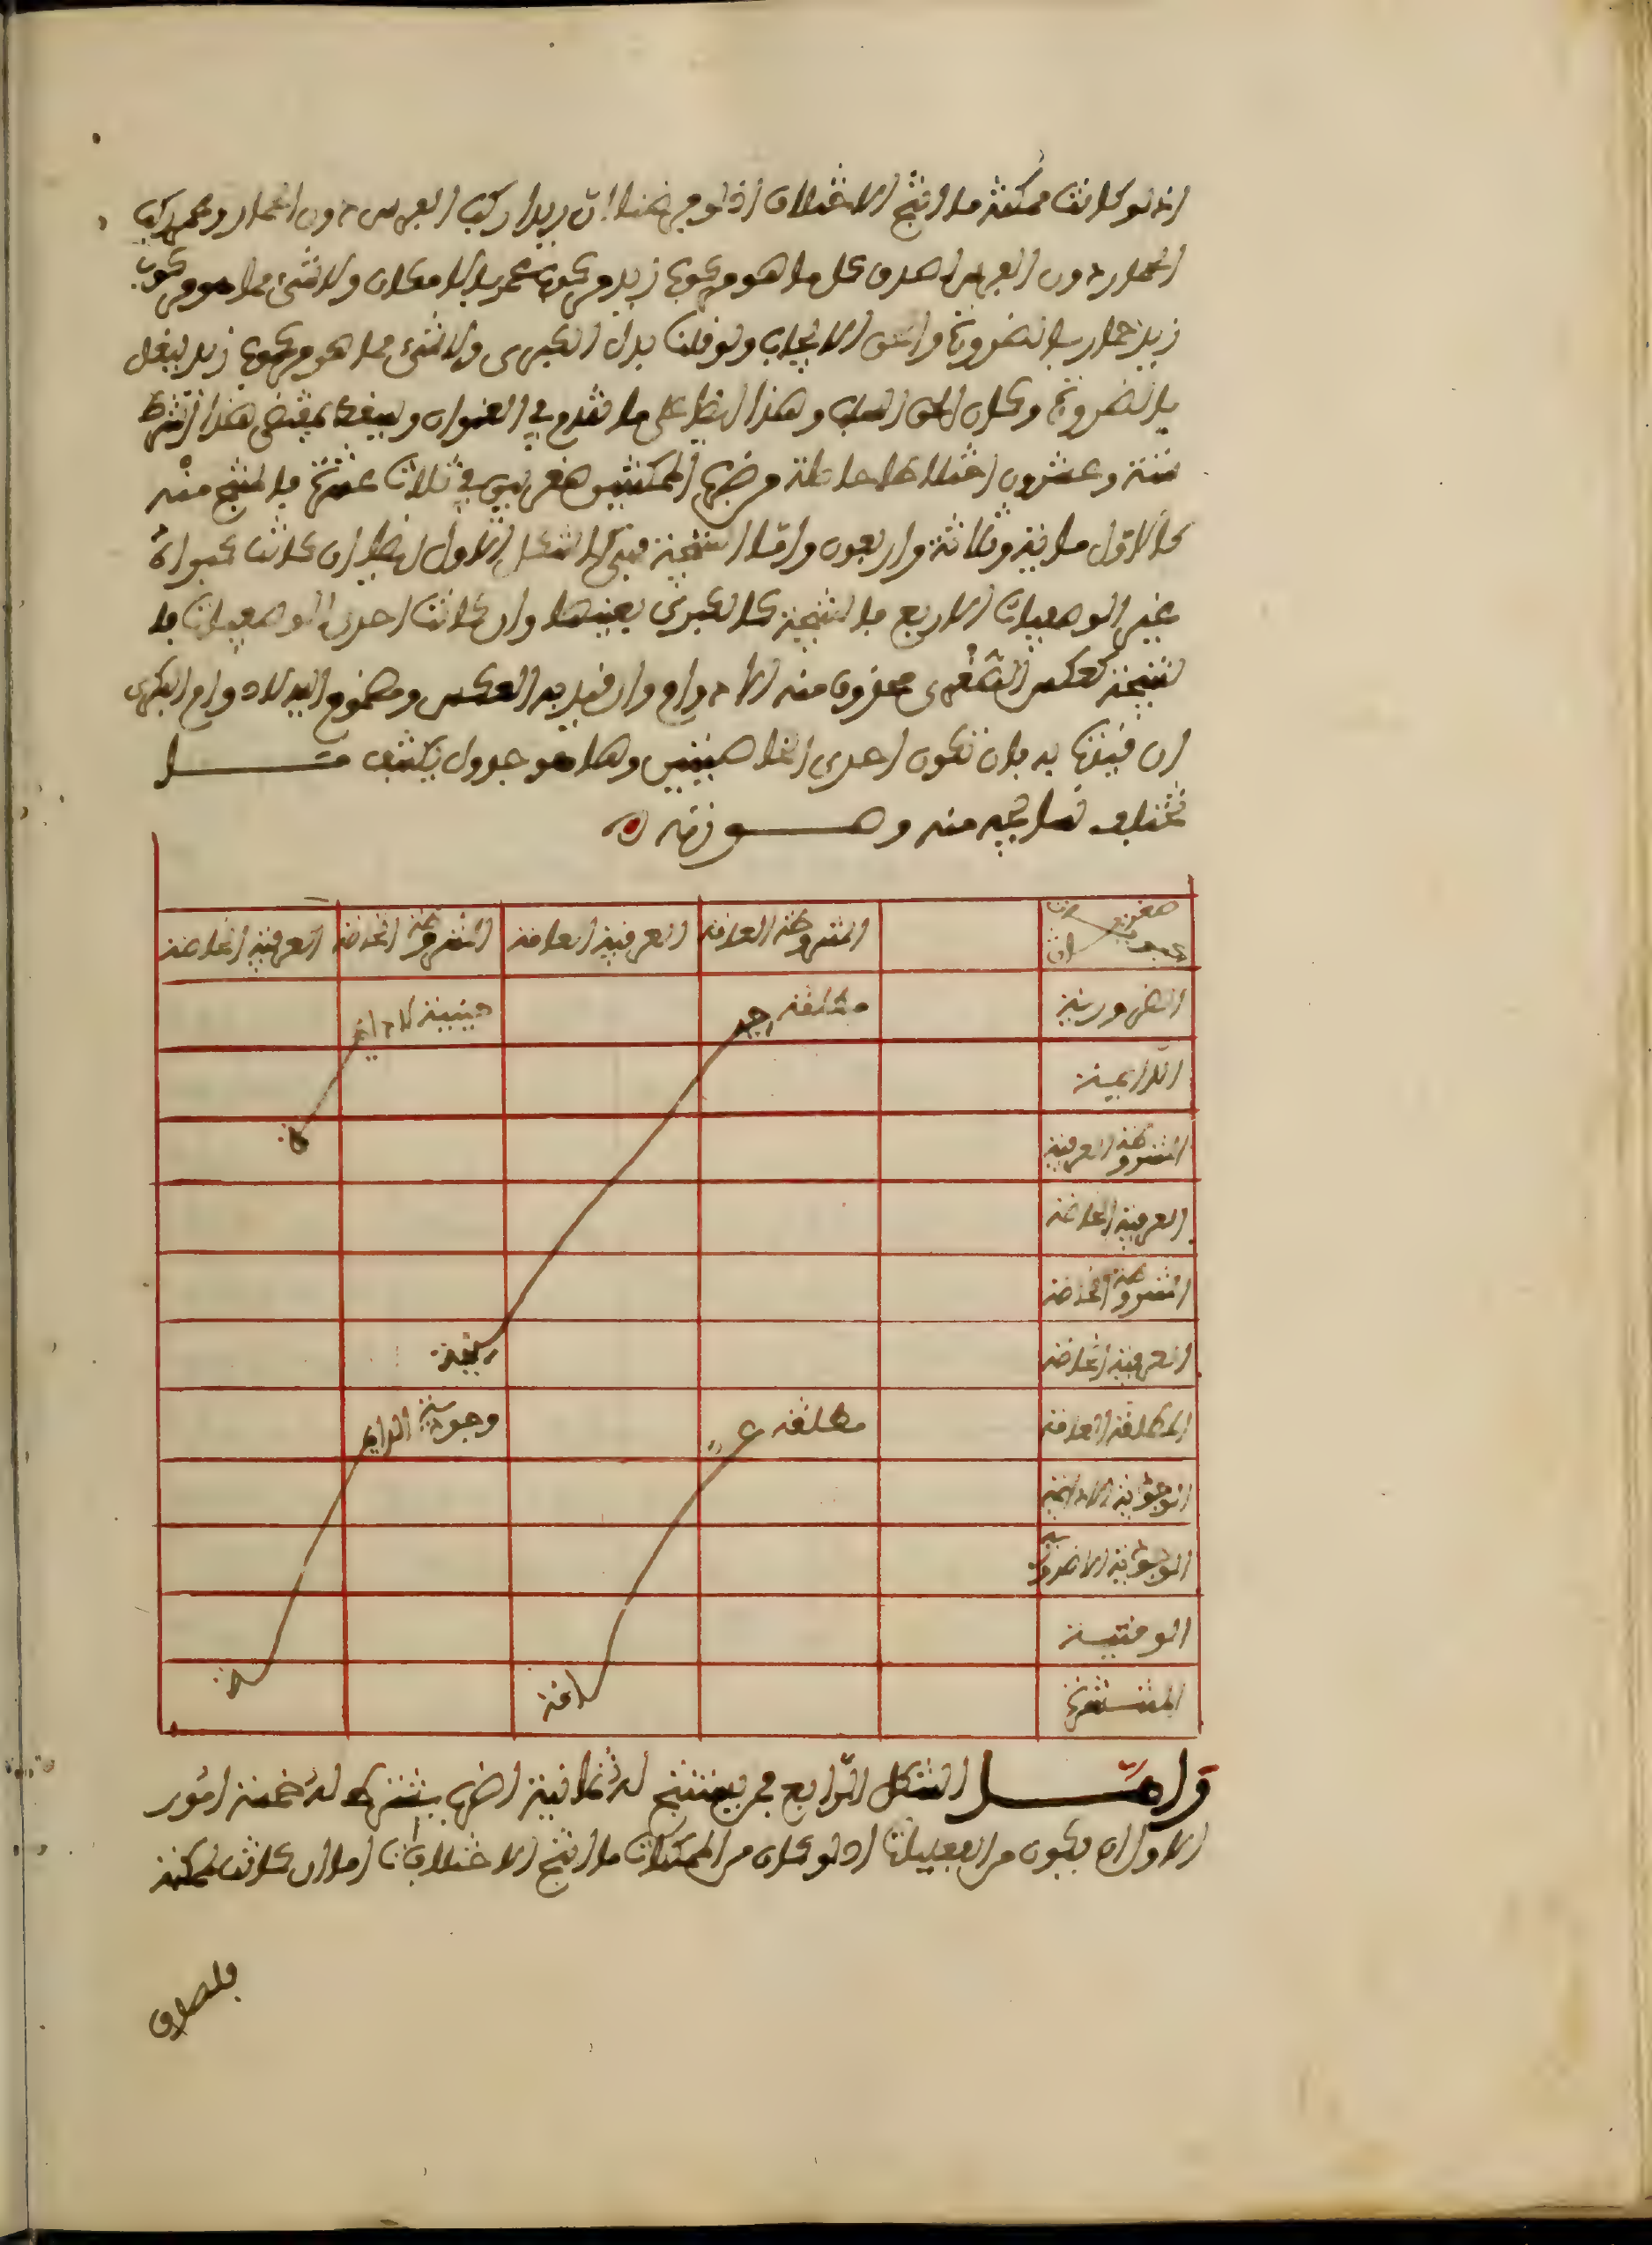 اذ لو كانت ممكنة ما انتج الاختلاف اذ لو فرضنا ان زيدا ركب الفرس دون الحمار وعمر ركب
الحمار دون الفرس لصدق كل ما هو مركوب زيد مركوب عمر بالامكان ولا شيء مما هو مركوب
زيد حمار بالضرورة والحق الايجاب ولو قلنا بدل الكبرى ولا شيء مما هو مركوب زيد ببغل
بالضرورة وكان الحق السلب وهذا ايضا على ما تقدم في العنوان ويسقط بمقتضى هذا الشرط
ستة وعشرون اختلاطا حاصلة من ضرب الممكنتين صغريين في ثلاث عشرة فالمنتج منه
كالاول مائة وثلاثة واربعون واما النتيجة فهي كالشكل الاول ايضا ان كانت كبراه
غير الوصفيات الاربع فالنتيجة كالكبرى بعينها وان كانت احدى الوصفيات فا
لنتيجة كعكس الصغرى محذوف منه اللادوام وان قيد به العكس ومضموم اليه لادوام الكبرى
ان قيدت به بان تكون احدى الخاصتين وها هو جدول يكشف ما
تختلف نتائجه منه وصورته ه
صغريات كبريات
المشروطة العامة
العرفية العامة
المشروطة الخاصة
العرفية الخاصة
الضرورية
مطلقة
حينية لادائمة
الدائمة
المشروطة العرفية
العرفية الخاصة
المشروطة الخاصة
العرفية الخاصة
المطلقة العامة
مطلقة عامة
وجودية
الوجودية اللادائمة
الوجودية اللاضرورية
الوقتية
المنتشرة
واما الشكل الرابع فجميع منتج له ثمانية اضرب يشترط له خمسة امور
الاول ان يكون من الفعليات اذ لو كان من الممكنات ما انتج الاختلافات اما ان كانت ممكنة
فلصدق